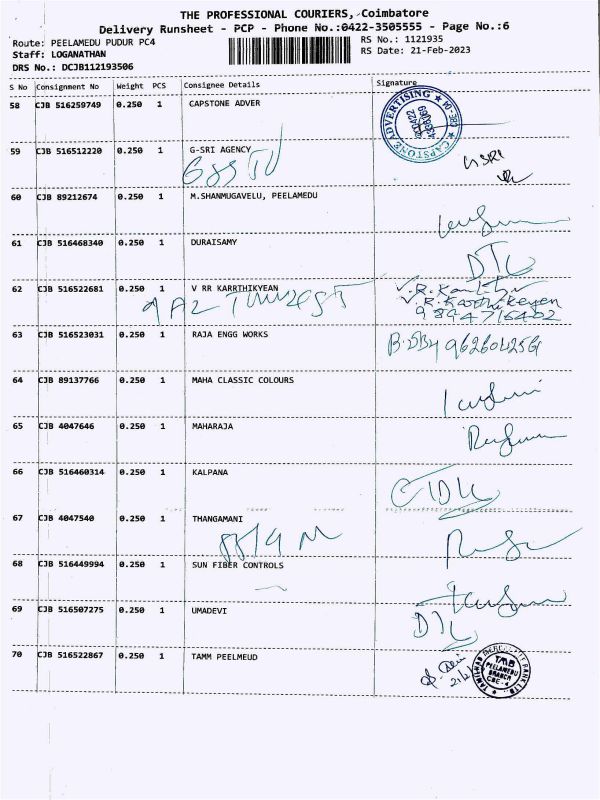 THE PROFESSIONAL COURIERS, Coimbatore
Delivery Runsheet - PCP - Phone No.:0422-3505555 - Page No.:6
Route: PEELAMEDU PUDUR PC4
RS No.: 1121935
Staff: LOGANATHAN
RS Date: 21-Feb-2023
DRS No.: DCJB112193506
S No Consignment No Weight PCS Consignee Details Signature
58 CJB 516259749 0.250 1 CAPSTONE ADVER
CAPSTONE ADVERTISING
59 CJB 516512220 0.250 1 G-SRI AGENCY
GSRI
60 CJB 89212674 0.250 1 M.SHANMUGAVELU, PEELAMEDU
61 CJB 516468340 0.250 1 DURAISAMY
62 CJB 516522681 0.250 1 V RR KARRTHIKYEAN
V.R. Karthikeyen
9894716402
63 CJB 516523031 0.250 1 RAJA ENGG WORKS
64 CJB 89137766 0.250 1 MAHA CLASSIC COLOURS
65 CJB 4047646 0.250 1 MAHARAJA
66 CJB 516460314 0.250 1 KALPANA
67 CJB 4047540 0.250 1 THANGAMANI
68 CJB 516449994 0.250 1 SUN FIBER CONTROLS
69 CJB 516507275 0.250 1 UMADEVI
70 CJB 516522867 0.250 1 TAMM PEELMEUD
TMB
PEELAMEDU
BRANCH
CBE-4